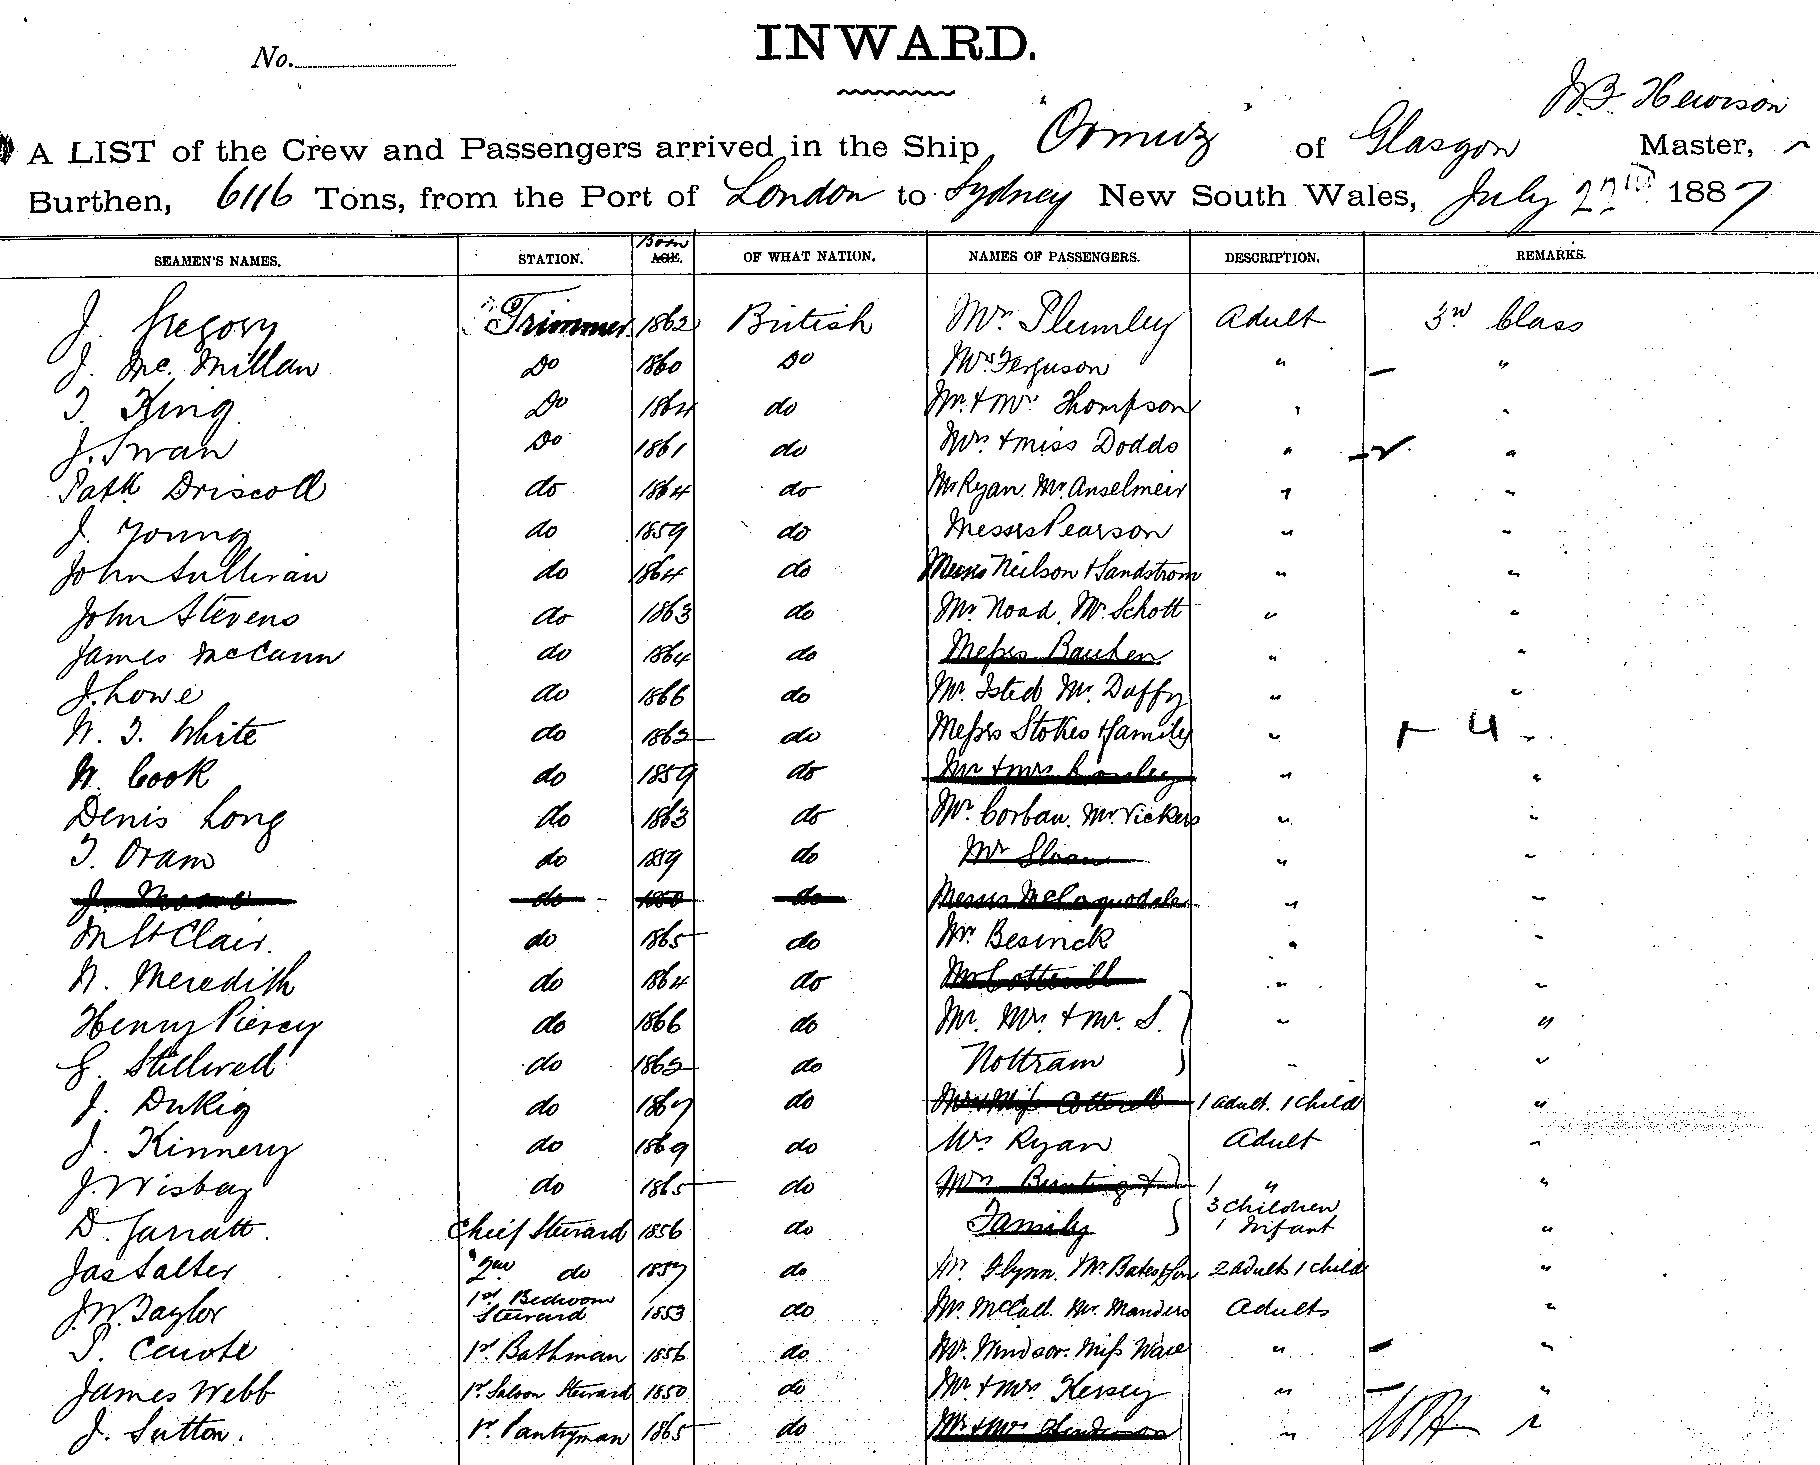 INWARD.
No.
J.B. Hewison
A LIST of the Crew and Passengers arrived in the Ship "Ormuz" of Glasgow Master,
Burthen, 6116 Tons, from the Port of London to Sydney New South Wales, July 22nd 1887
SEAMEN'S NAMES. STATION. Born AGE. OF WHAT NATION. NAMES OF PASSENGERS. DESCRIPTION. REMARKS.
J. Gregory Trimmer 1862 British Mr. Plumley Adult 3rd Class
J. Mc. Millan Do 1860 Do Mrs Ferguson " "
T. King Do 1864 do Mr. & Mrs Thompson " "
J. Swan Do 1861 do Mrs. & Miss Dodds " "
Patk Driscoll do 1864 do Mr Ryan. Mr. Anselmeir " "
J. Young do 1859 do Messrs Pearson " "
John Sullivan do 1864 do Messrs Neilson & Sandstrom " "
John Stevens do 1863 do Mr. Noad. Mr. Schott " "
James McCann do 1864 do Messrs Bauken " "
J. Lowe do 1866 do Mr. Isted Mr. Duffy " "
W. T. White do 1862 do Messrs Stokes & family " 4 "
W. Cook do 1859 do Mr & Mrs " "
Denis Long do 1863 do Mr. Corban. Mr. Vickers " "
T. Oram do 1859 do Mr Sloan " "
J. Moore do do Messrs McCorquodale " "
M St Clair. do 1865 do Mr. Besinck " "
W. Meredith do 1864 do Mr Cotterill " "
Henry Piercy do 1866 do Mr. Mrs. & Mr. S. " "
G. Stillwell do 1862 do Nottram " "
J. Dukig do 1867 do Mrs & Miss Cotterell 1 adult. 1 child "
J. Kinnery do 1869 do Mrs Ryan Adult "
J. Wisbey do 1865 do Mrs Bunting & 1 " "
D. Jarratt. Chief Steward 1856 do Family 3 children 1 Infant "
Jas Salter 2nd do 1857 do Mr. Glynn. Mr. Bates & Son 2 adults 1 child "
J.W. Taylor 1st. Bedroom Steward 1853 do Mr. McCall. Mr. Manders Adults "
1st. Bathman 1856 do Mr. Windsor. Miss Ware " "
James Webb 1st. Saloon Steward 1850 do Mr. & Mrs. Kersey " "
J. Sutton. 1st. Pantryman 1865 do Mr. & Mrs Henderson "